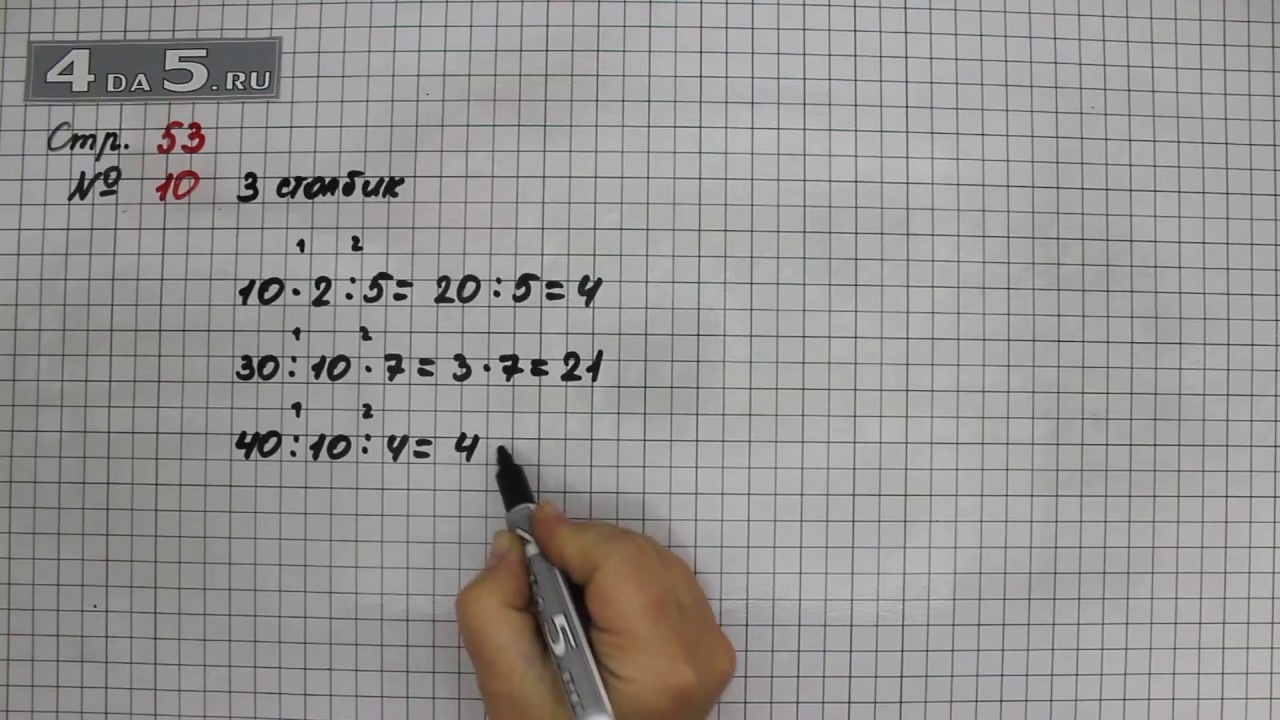 4DA5.RU
Стр. 53
№ 10 3 столбик
1 2
10 · 2 : 5 = 20 : 5 = 4
1 2
30 : 10 · 7 = 3 · 7 = 21
1 2
40 : 10 : 4 = 4
5